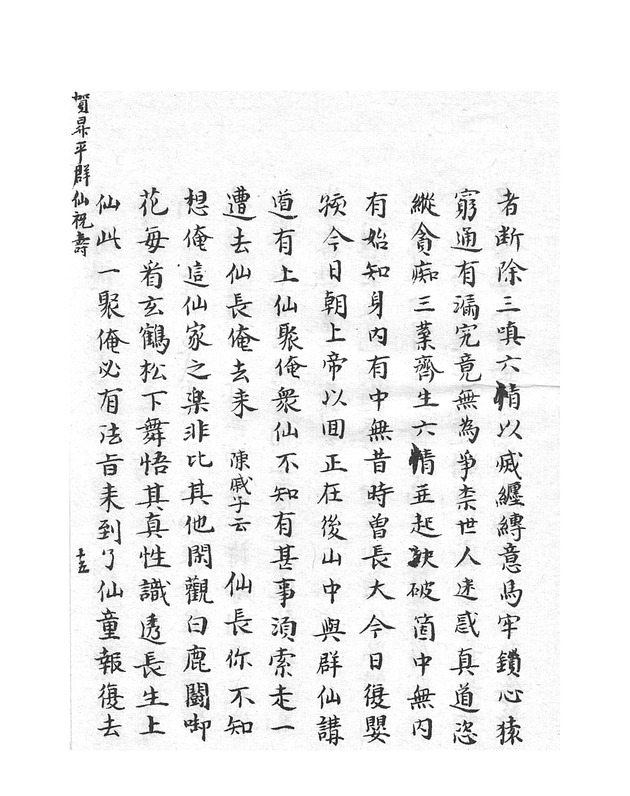 者断除三嗔六情以戚纒縳意馬牢鎖心猿
窮通有漏究竟無為爭柰世人迷惑真道恣
縱貪痴三業齊生六情並起 破箇中無内
有始知身内有中無昔時曽長大今日復嬰
孩今日朝上帝以囬正在後山中與群仙講
道有上仙聚俺衆仙不知有甚事湏索走一
遭去仙長俺去来 陳戚子云 仙長你不知
想俺這仙家之楽非比其他閑觀白鹿闘啣
花每看玄鶴松下舞悟其真性識透長生上
仙此一聚俺必有法旨来到了仙童報復去
賀昇平群仙祝壽
十五